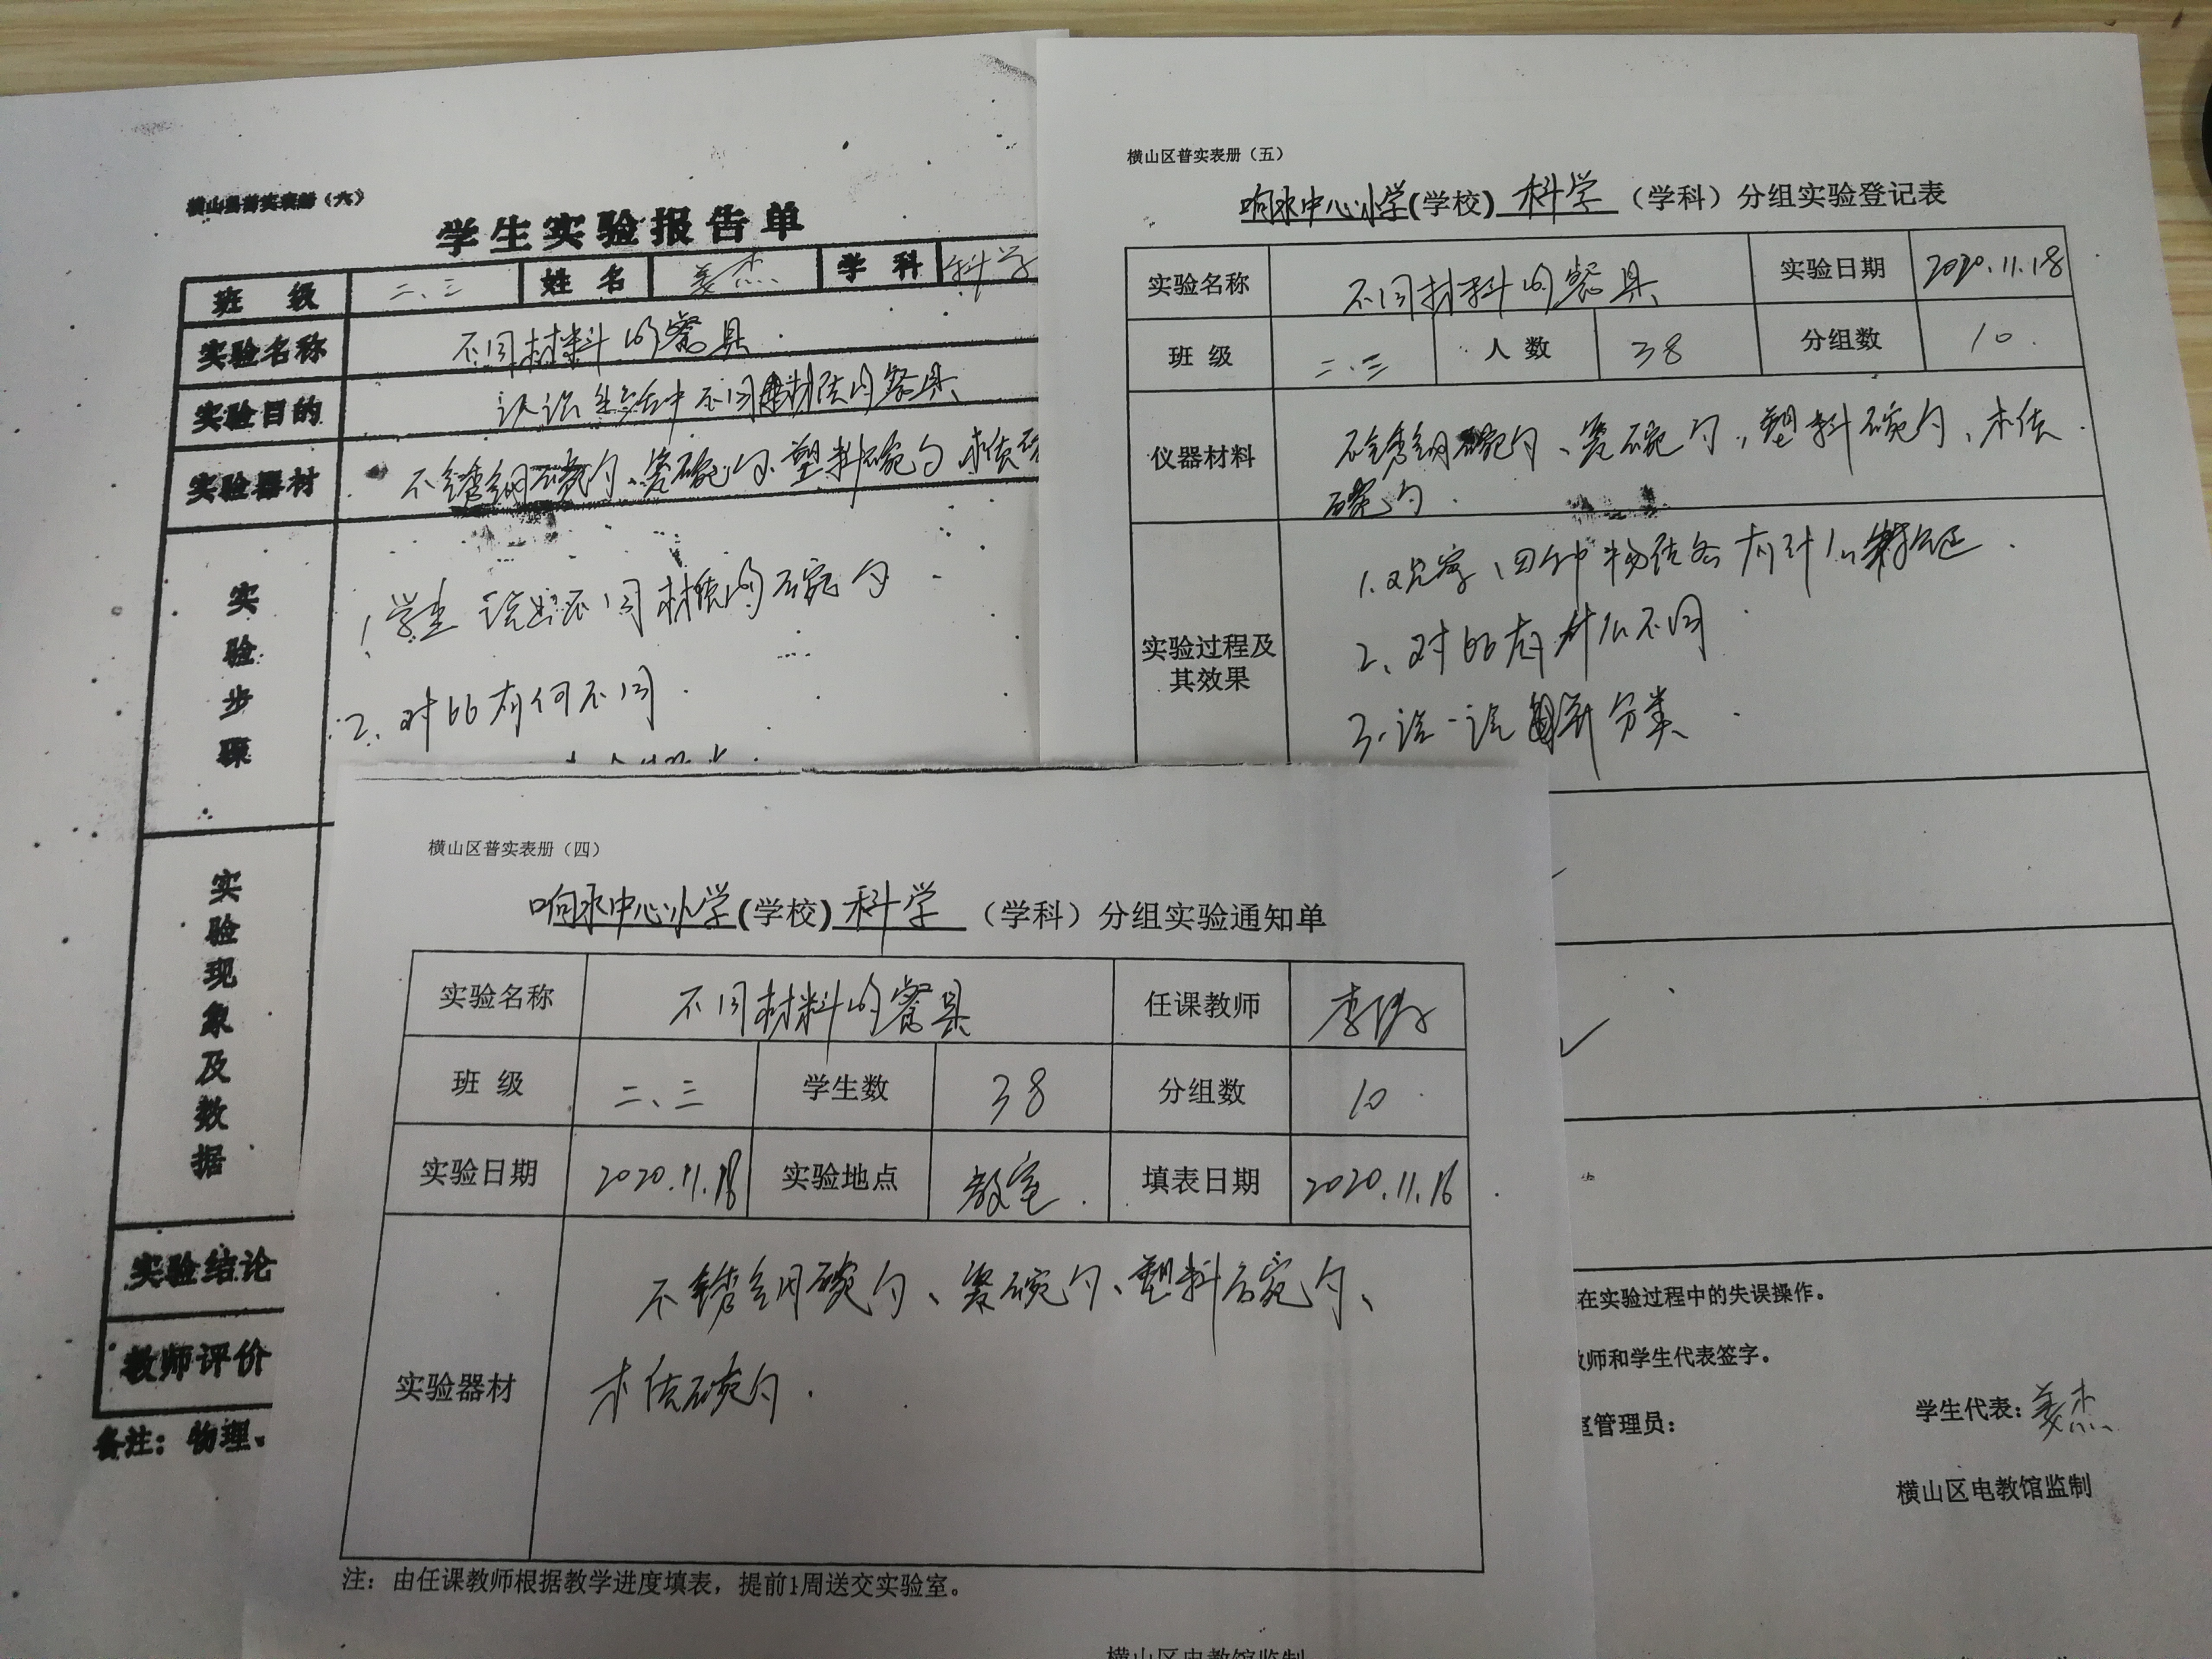 横山县普实表册（六）
学生实验报告单
班 级 二、三 姓 名 姜杰 学 科 科学
实验名称 不同材料的餐具.
实验目的 认识生活中不同材质的餐具
实验器材 不锈钢碗勺、瓷碗勺、塑料碗勺 木质碗
实验步骤
1. 学生说出不同材质的碗勺
2、对比有何不同.
实验现象及数据
实验结论
教师评价
备注：物理、
横山区普实表册（五）
响水中心小学(学校) 科学 （学科）分组实验登记表
实验名称 不同材料的餐具 实验日期 2020.11.18
班 级 二、三 人 数 38 分组数 10.
仪器材料 不锈钢碗勺、瓷碗勺，塑料碗勺、木质
碗勺.
实验过程及
其效果
1.观察、四种物质各有什么特征.
2、对比有什么不同
3.说一说 分类.
在实验过程中的失误操作。
教师和学生代表签字。
室管理员： 学生代表：姜杰
横山区电教馆监制
横山区普实表册（四）
响水中心小学(学校) 科学 （学科）分组实验通知单
实验名称 不同材料的餐具 任课教师
班 级 二、三 学生数 38 分组数 10
实验日期 2020.11.18 实验地点 教室. 填表日期 2020.11.16
实验器材 不锈钢碗勺、瓷碗勺、塑料碗勺、
木质碗勺.
注：由任课教师根据教学进度填表，提前1周送交实验室。
横山区电教馆监制